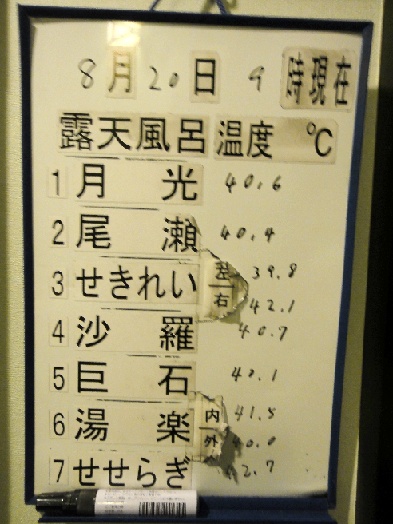 8月20日 9時現在
露天風呂 温度 ℃
1 月光 40.6
2 尾瀬 40.4
3 せきれい 左 39.8
右 42.1
4 沙羅 40.7
5 巨石
6 湯楽 内 41.5
外 40.0
7 せせらぎ 42.7